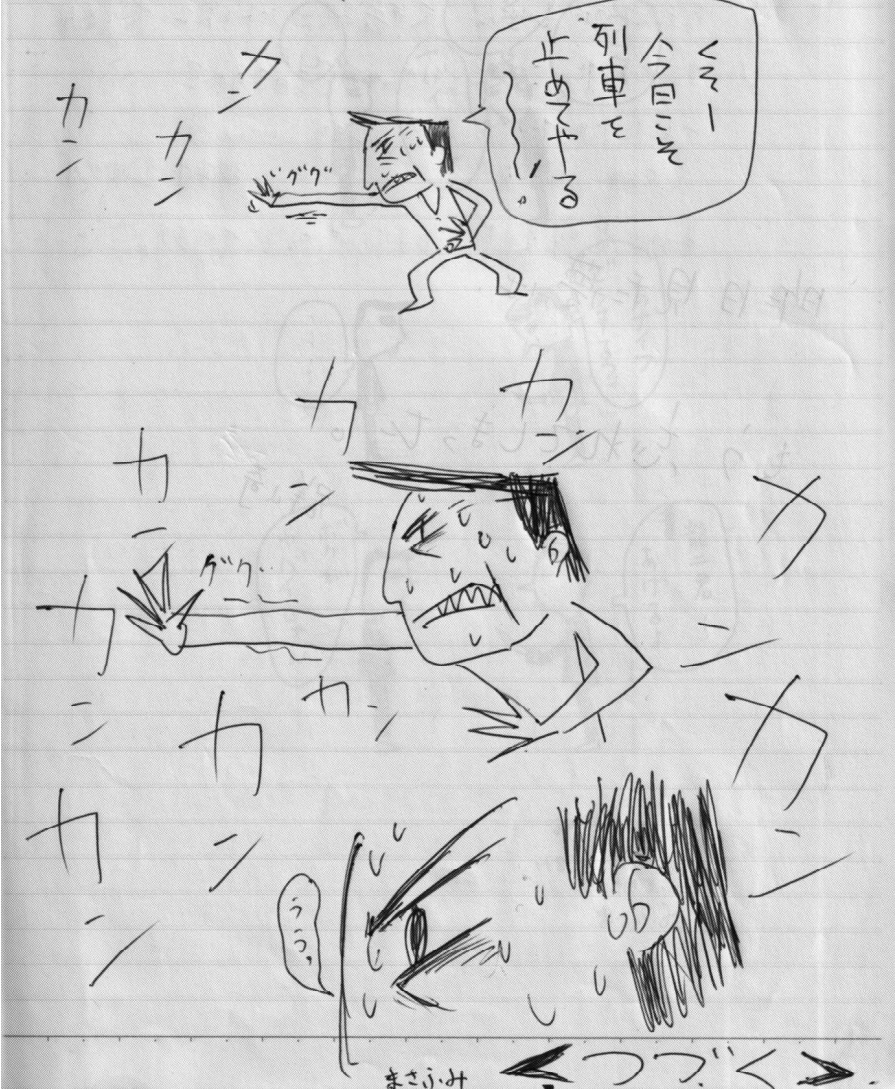 くそー
今日こそ
列車を
止めてやーる
カン
カン
カン
グググ
カン
カン
カン
カン
カン
ググ
カン
カン
カン
カン
ううっ。
まさふみ
つづく